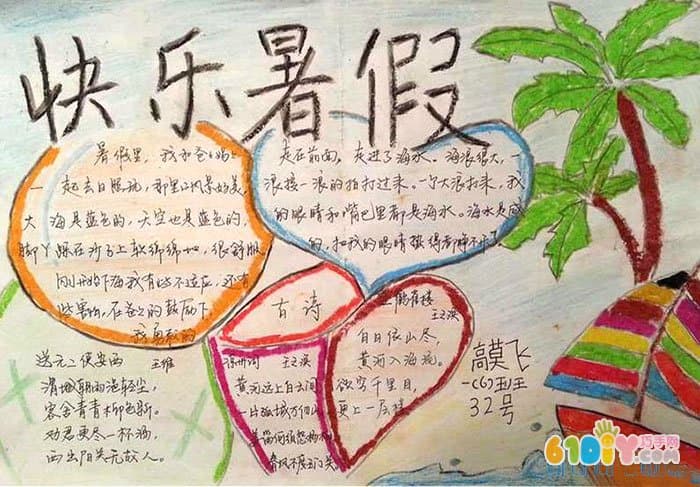 快乐暑假
暑假里，我和爸妈
一起去日照玩，那里的风景好美，
大海是蓝色的，天空也是蓝色的，
脚丫踩在沙子上软绵绵地，很舒服。
刚刚下海我有些不适应，还有
些害怕，在爸爸的鼓励下，
我勇敢的
走在前面。走进了海水。海浪很大，一
浪接一浪的拍打过来。一个大浪打来，我
的眼睛和嘴巴里都是海水。海水是咸
的，把我的眼睛
古诗
送元二使安西 王维
渭城朝雨浥轻尘，
客舍青青柳色新。
劝君更尽一杯酒，
西出阳关无故人。
凉州词 王之涣
黄河远上白云间
一片孤城万仞山
羌笛何须怨杨柳
春风不度玉门关
登鹳雀楼
王之涣
白日依山尽，
黄河入海流。
欲穷千里目，
更上一层楼
高莫飞
一(6)班
32号
61DIY巧手网